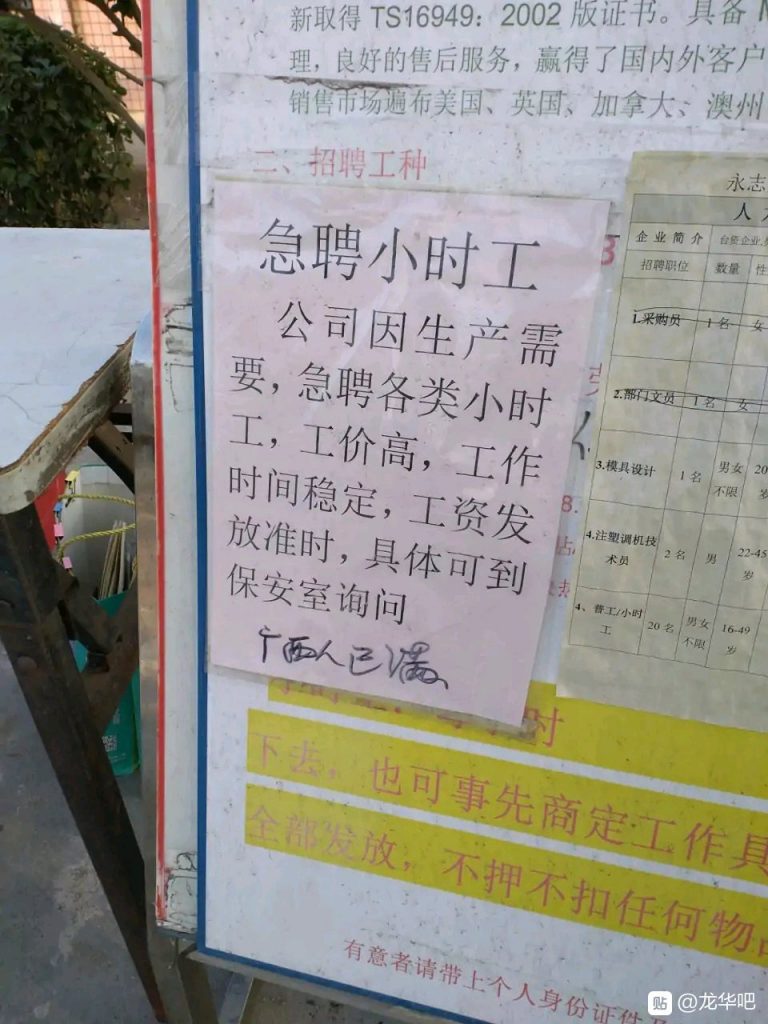 新取得 TS16949：2002 版证书。具备 M
理，良好的售后服务，赢得了国内外客户
销售市场遍布美国、英国、加拿大、澳州
二、招聘工种
急聘小时工
公司因生产需
要，急聘各类小时
工，工价高，工作
时间稳定，工资发
放准时，具体可到
保安室询问
广西人已满
永志
人
企业简介 台资企业,
招聘职位 数量 性
1.采购员 1名 女
2.部门文员 1名 女
3.模具设计 1名 男女不限 20 岁
4.注塑调机技术员 2名 男 22-45 岁
4、普工/小时工 20名 男女不限 16-49 岁
时
下去，也可事先商定工作具
全部发放，不押不扣任何物品
有意者请带上个人身份证件
贴 @龙华吧